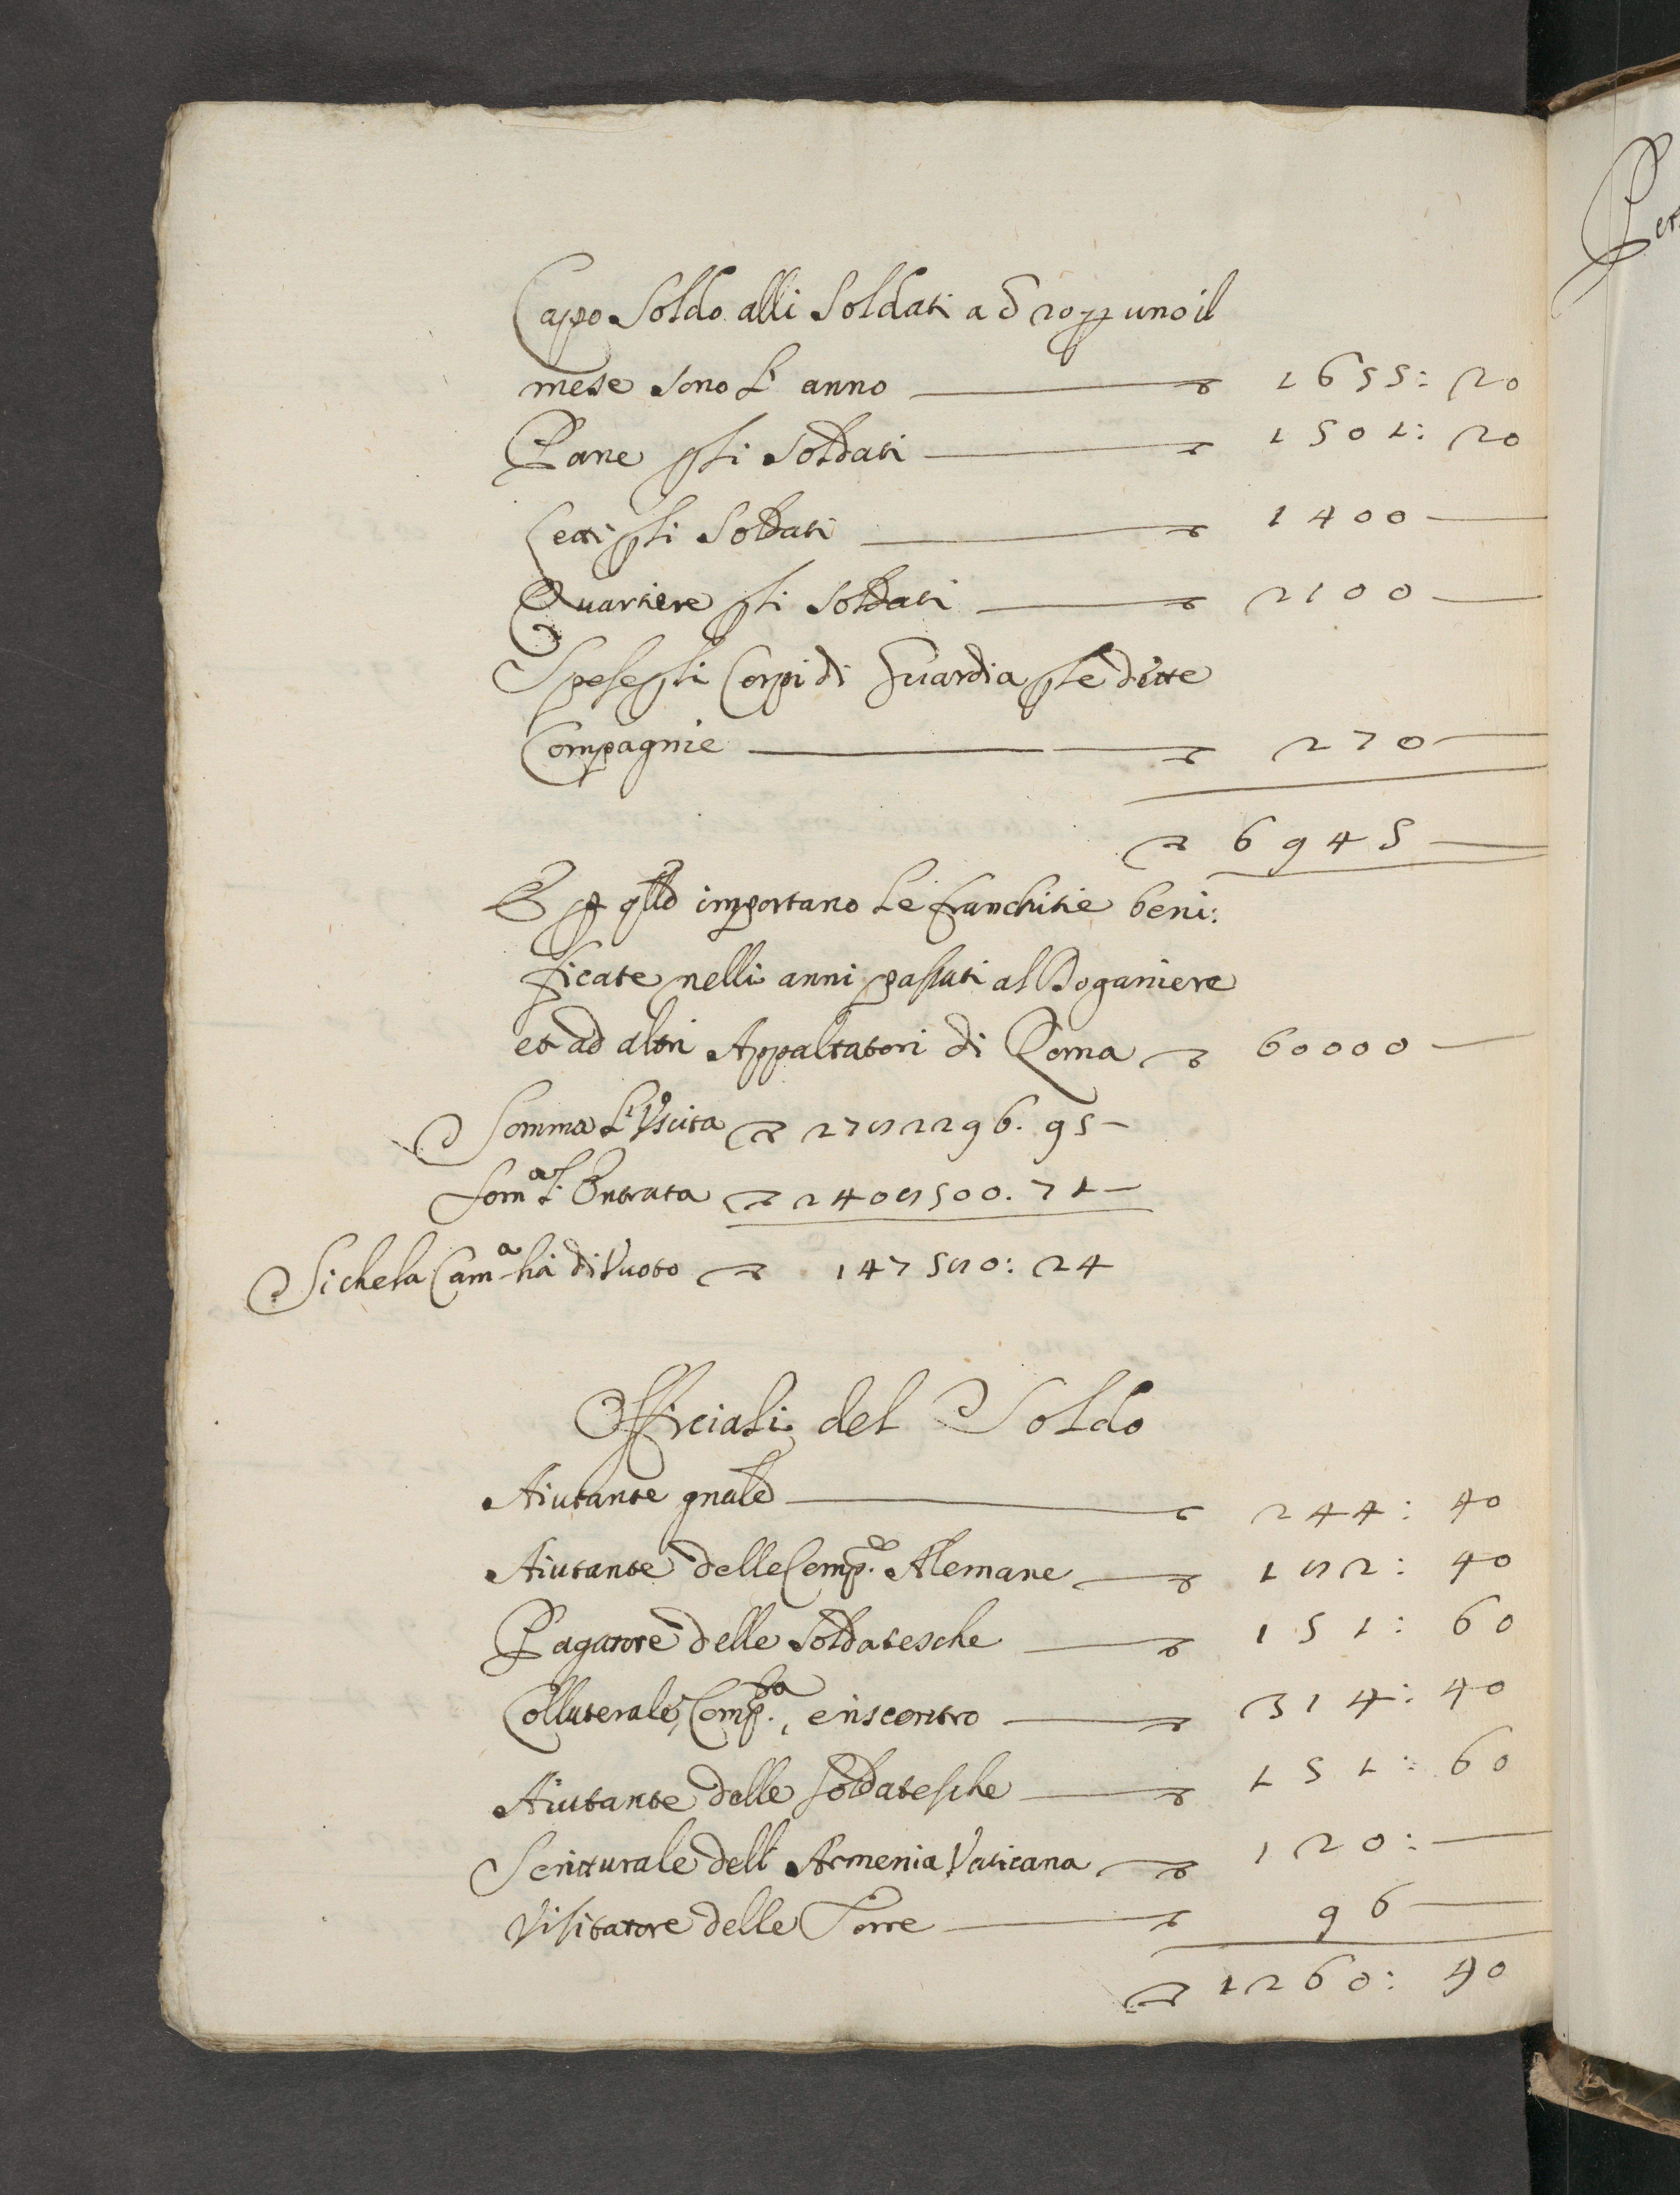 Capo Soldo alli Soldati a δ 20 p uno il
mese sono L' anno 1655: 20
Pane p li Soldati 1501: 20
Letti p li Soldati 1400
Quartiere p li Soldati 2100
Spese p li Corpi di Guardia p le dette
Compagnie 270
6945
E p qllo importano Le franchitie beni:
ficate nelli anni passati al Doganiere
et ad altri Appaltatori di Roma 60000
Somma L'Uscita 2782296. 95
Som.a L' Entrata 2408500. 71
Si che la Cam.a há di Vuoto 147580: 24
Officiali del Soldo
Aiutante gnale 244: 40
Aiutante delle Comp.e Alemane 182: 40
Pagatore delle Soldatesche 151: 60
Collaterale, Comp.ta, e riscontro 314: 40
Aiutante delle Soldatesche 151: 60
Scritturale dell' Armenia Vaticana 120:
Visitatore delle Torre 96
1260: 40